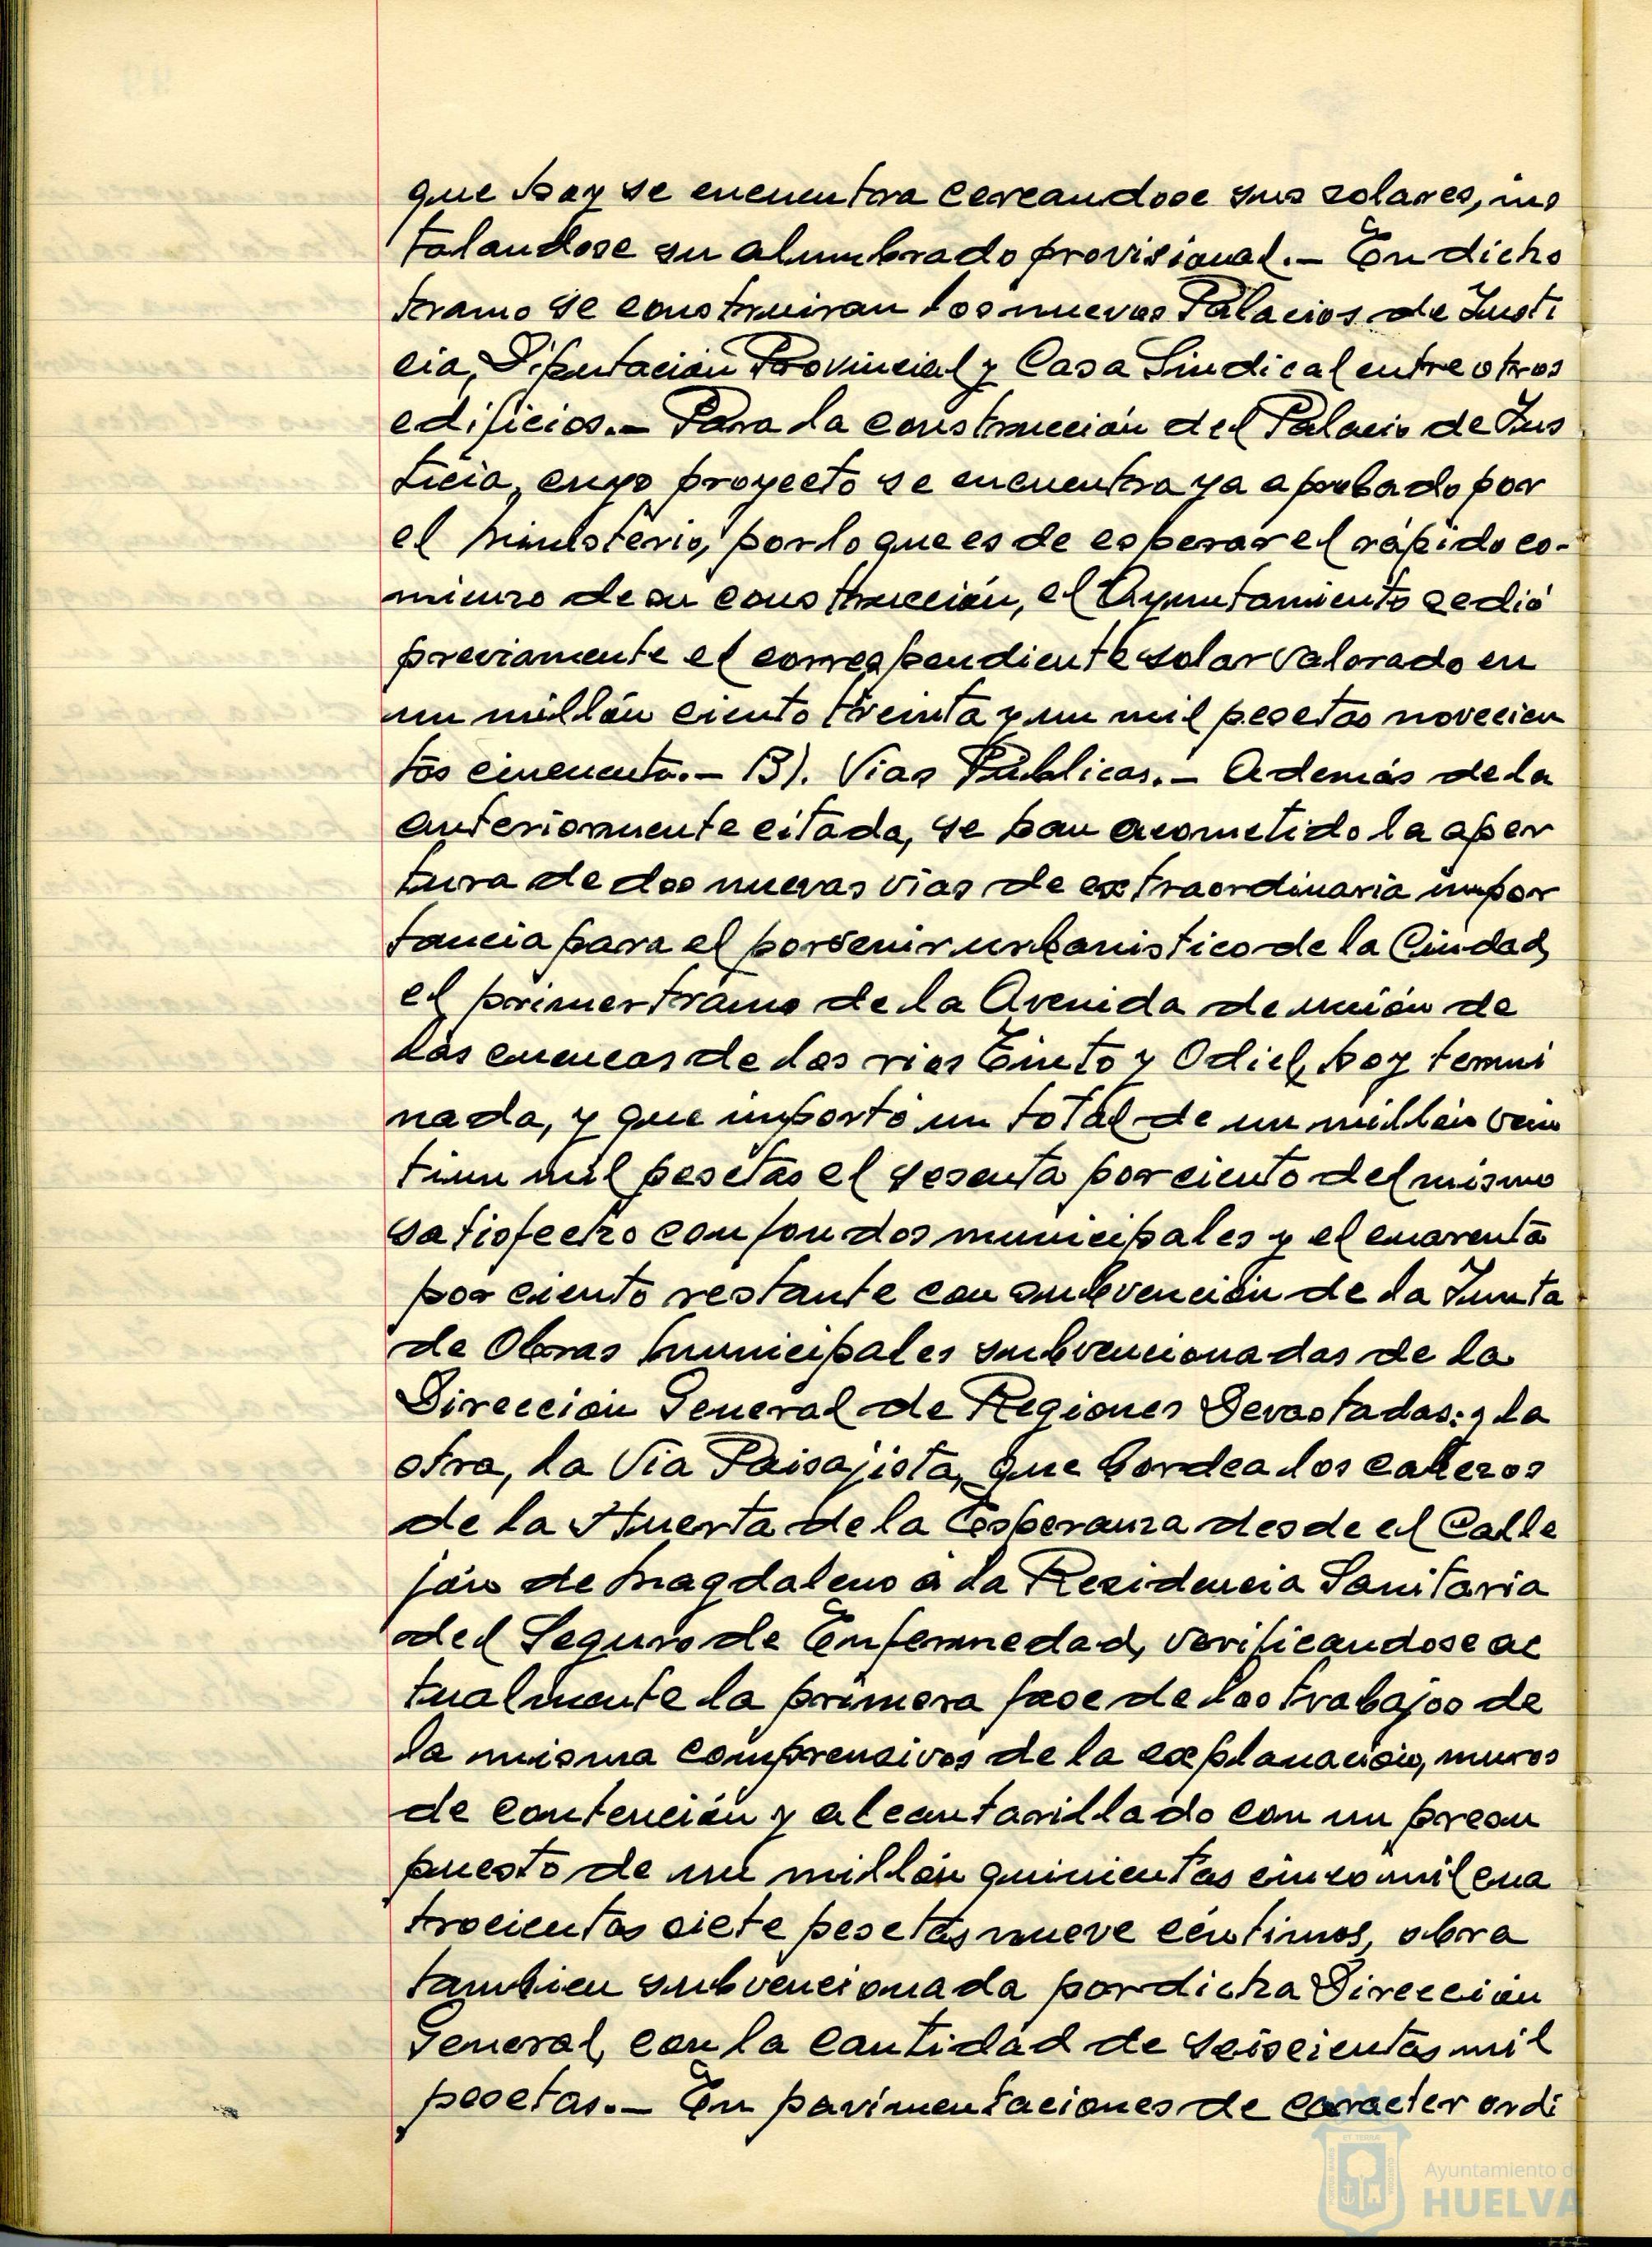 que hoy se encuentra cercandose sus solares, ins
talandose su alumbrado provisional.- En dicho
tramo se construiran los nuevos Palacios de Justi
cia, Diputación Provincial y Casa Sindical entre otros
edificios.- Para la construcción del Palacio de Jus
ticia, cuyo proyecto se encuentra ya aprobado por
el Ministerio, por lo que es de esperar el rápido co-
mienzo de su construcción, el Ayuntamiento cedió
previamente el correspondiente solar valorado en
un millón ciento treinta y un mil pesetas novecien
tos cincuenta.- B). Vias Públicas.- Además de la
anteriormente citada, se han acometido la aper
tura de dos nuevas vias de extraordinaria impor
tancia para el porvenir urbanistico de la Ciudad,
el primer tramo de la Avenida de unión de
las cuencas de los rios Tinto y Odiel, hoy termi
nada, y que importó un total de un millón vein
tiun mil pesetas el sesenta por ciento del mismo
satisfecho con fondos municipales y el cuarenta
por ciento restante con subvención de la Junta
de Obras Municipales subvencionadas de la
Dirección General de Regiones Devastadas: y la
otra, la Via Paisajista, que bordea los cabezos
de la Huerta de la Esperanza desde el Calle
jón de Magdaleno a la Residencia Sanitaria
del Seguro de Enfermedad, verificandose ac
tualmente la primera fase de los trabajos de
la misma comprensivos de la explanación, muros
de contención y alcantarillado con un presu
puesto de un millón quinientas cinco mil cua
trocientas siete pesetas nueve céntimos, obra
tambien subvencionada por dicha Dirección
General, con la cantidad de seiscientas mil
pesetas.- En pavimentaciones de caracter ordi
Ayuntamiento de
HUELVA